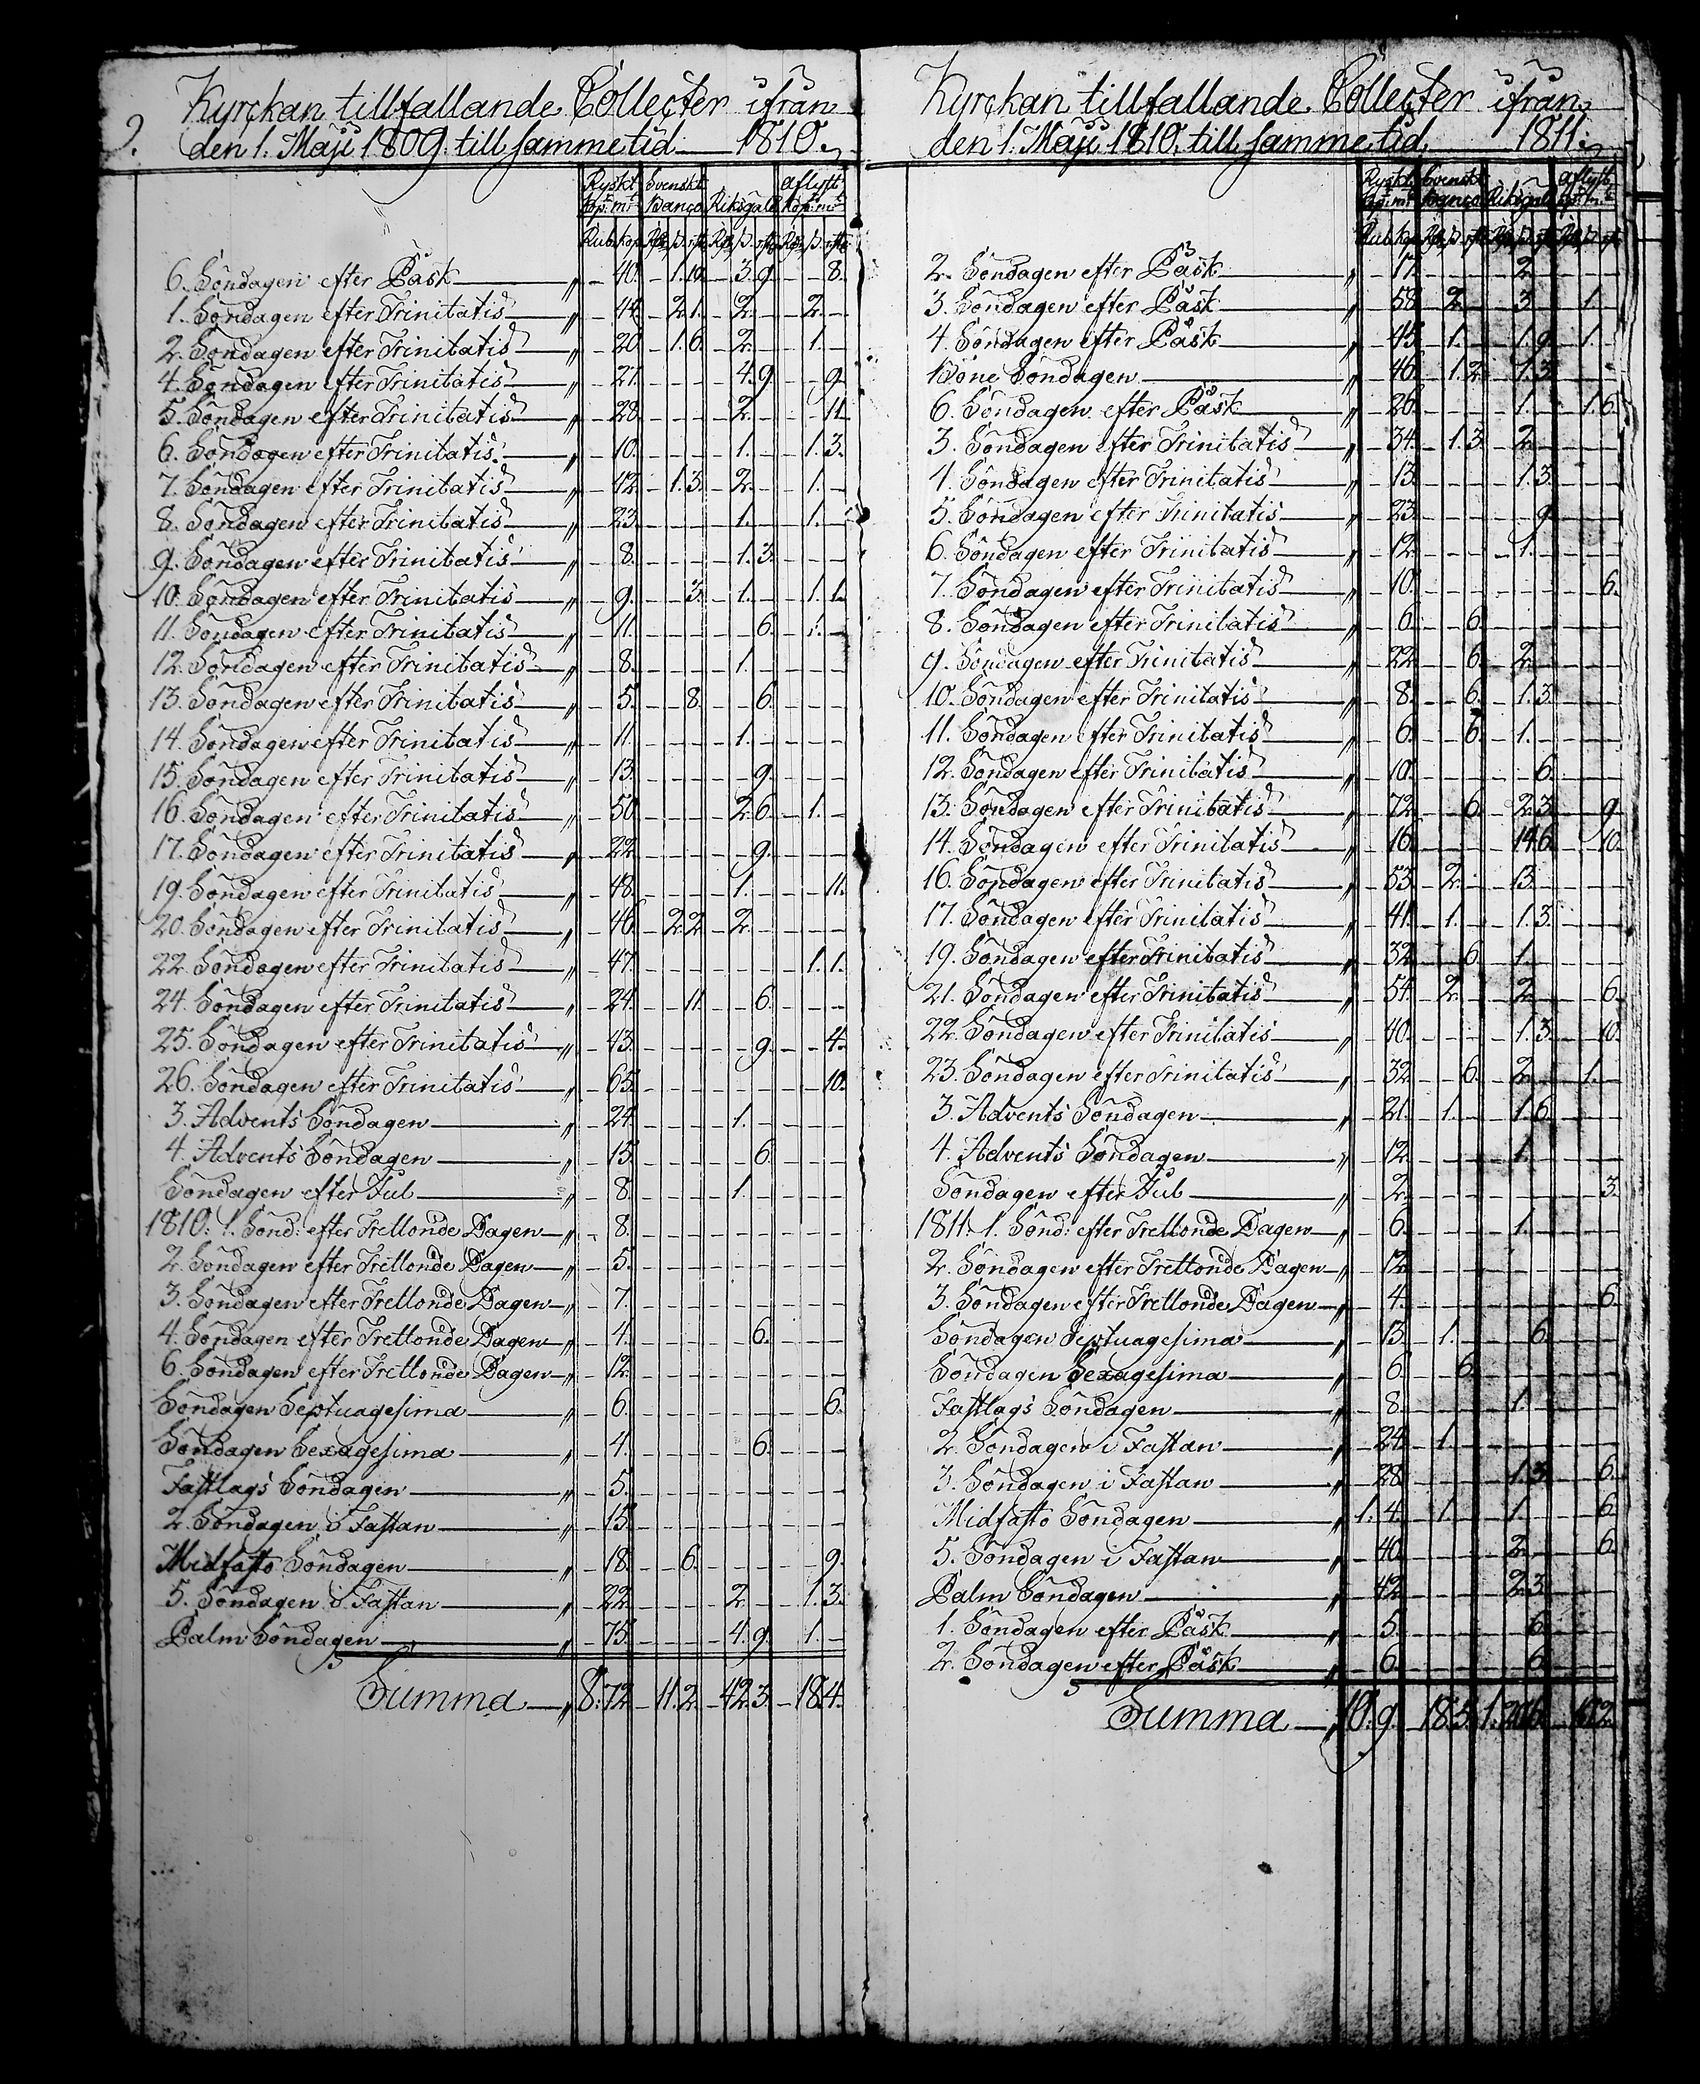 9.
Kyrckan tillfallande Collecter ifrån
den 1. Maji 1809 till samme tid 1810.
Ryskt Kop:mt Svenskt Banco Riksgäld aflyst Kop:mt
Rub. kop.
6. Söndagen efter Påsk „ – 40. – 1. 10. – 3. 9. – – 8.
1. Söndagen efter Trinitatis „ – 44. – 2. 1. – 2. – – 2. –
2. Söndagen efter Trinitatis „ – 20. – 1. 6. – 2. – – 1. –
4. Söndagen efter Trinitatis „ – 27. – – – – 4. 9. – – 9.
5. Söndagen efter Trinitatis „ – 28. – – – – 2. – – – 11.
6. Söndagen efter Trinitatis „ – 10. – – – – 1. – – 1. 3.
7. Söndagen efter Trinitatis „ – 12. – 1. 3. – 2. – – 1. –
8. Söndagen efter Trinitatis „ – 23. – – – – 1. – – 1. –
9. Söndagen efter Trinitatis „ – 8. – – – – 1. 3. – – –
10. Söndagen efter Trinitatis „ – 9. – – 3. – 1. – – 1. 1.
11. Söndagen efter Trinitatis „ – 11. – – – – – 6. – 1. –
12. Söndagen efter Trinitatis „ – 8. – – – – 1. – – – –
13. Söndagen efter Trinitatis „ – 5. – – 8. – – 6. – – –
14. Söndagen efter Trinitatis „ – 11. – – – – 1. – – – –
15. Söndagen efter Trinitatis „ – 13. – – – – – 9. – – –
16. Söndagen efter Trinitatis „ – 50. – – – – 2. 6. – 1. –
17. Söndagen efter Trinitatis „ – 22. – – – – – 9. – – –
19. Söndagen efter Trinitatis „ – 48. – – – – 1. – – – 11.
20. Söndagen efter Trinitatis „ – 46. – 2. 2. – 2. – – – –
22. Söndagen efter Trinitatis „ – 47. – – – – – – – 1. 1.
24. Söndagen efter Trinitatis „ – 24. – – 11. – – 6. – – –
25. Söndagen efter Trinitatis „ – 43. – – – – – 9. – – 4.
26. Söndagen efter Trinitatis „ – 65. – – – – – – – – 10.
3. Advents Söndagen „ – 24. – – – – 1. – – – –
4. Advents Söndagen „ – 15. – – – – – 6. – – –
Söndagen efter Jul „ – 8. – – – – 1. – – – –
1810. 1. Sönd: efter Trettonde Dagen „ – 8. – – – – – – – – –
2. Söndagen efter Trettonde Dagen „ – 5. – – – – – – – – –
3. Söndagen efter Trettonde Dagen „ – 7. – – – – – – – – –
4. Söndagen efter Trettonde Dagen „ – 4. – – – – – 6. – – –
6. Söndagen efter Trettonde Dagen „ – 12. – – – – – – – – –
Söndagen Septuagesima „ – 6. – – – – – – – – 6.
Söndagen Sexagesima „ – 4. – – – – – 6. – – –
Fastlags Söndagen „ – 5. – – – – – – – – –
2. Söndagen i Fastan „ – 15. – – – – – – – – –
Midfasto Söndagen „ – 18. – – 6. – – – – – 9.
5. Söndagen i Fastan „ – 22. – – – – 2. – – 1. 3.
Palm Söndagen „ – 75. – – – – 4. 9. – 1. –
Summa „ 8. 72. – 11. 2. – 42. 3. – 18. 4.
Kyrckan tillfallande Collecter ifrån
den 1. Maji 1810. till samme tid 1811.
Ryskt Kop:mt Svenskt Banco Riksgäld aflyst Kop:mt
Rub. kop.
2. Söndagen efter Påsk „ – 17. – – – – 2. – – – –
3. Söndagen efter Påsk „ – 58. – 2. – – 3. – – 1. –
4. Söndagen efter Påsk „ – 43. – 1. – – 1. 9. – 1. –
Böne Söndagen „ – 46. – 1. 2. – 1. 3. – – –
6. Söndagen efter Påsk „ – 26. – – – – 1. – – 1. 6.
3. Söndagen efter Trinitatis „ – 34. – 1. 3. – 2. – – – –
4. Söndagen efter Trinitatis „ – 13. – – – – 1. 3. – – –
5. Söndagen efter Trinitatis „ – 23. – – – – – 9. – – –
6. Söndagen efter Trinitatis „ – 12. – – – – 1. – – – –
7. Söndagen efter Trinitatis „ – 10. – – – – – – – – 6.
8. Söndagen efter Trinitatis „ – 6. – – 6. – – – – – –
9. Söndagen efter Trinitatis „ – 22. – – 6. – 2. – – – –
10. Söndagen efter Trinitatis „ – 8. – – 6. – 1. 3. – – –
11. Söndagen efter Trinitatis „ – 6. – – 6. – 1. – – – –
12. Söndagen efter Trinitatis „ – 10. – – – – – 6. – – –
13. Söndagen efter Trinitatis „ – 72. – – 6. – 2. 3. – – 9.
14. Söndagen efter Trinitatis „ – 16. – – – – 14. 6. – – 10.
16. Söndagen efter Trinitatis „ – 53. – 2. – – 13. – – – –
17. Söndagen efter Trinitatis „ – 41. – 1. – – 1. 3. – – –
19. Söndagen efter Trinitatis „ – 32. – – 6. – 1. – – – –
21. Söndagen efter Trinitatis „ – 54. – 2. – – 2. – – – 6.
22. Söndagen efter Trinitatis „ – 40. – – – – 1. 3. – – 10.
23. Söndagen efter Trinitatis „ – 32. – – 6. – 2. – – 1. –
3. Advents Söndagen „ – 21. – 1. – – 1. 6. – – –
4. Advents Söndagen „ – 12. – – – – 1. – – – –
Söndagen efter Jul „ – 2. – – – – – – – – 3.
1811. 1. Sönd: efter Trettonde Dagen „ – 6. – – – – 1. – – – –
2. Söndagen efter Trettonde Dagen „ – 12. – – – – – – – – –
3. Söndagen efter Trettonde Dagen „ – 4. – – – – – – – – 6.
Söndagen Septuagesima „ – 13. – 1. – – – 6. – – –
Söndagen Sexagesima „ – 6. – – 6. – – – – – –
Fastlags Söndagen „ – 8. – – – – 1. – – – –
2. Söndagen i Fastan „ – 24. – 1. – – – – – – –
3. Söndagen i Fastan „ – 28. – – – – 1. 3. – – 6.
Midfasto Söndagen 1. 4. – 1. – – 1. – – – 6.
5. Söndagen i Fastan „ – 40. – – – – 2. – – – 6.
Palm Söndagen „ – 42. – – – – 2. 3. – – –
1. Söndagen efter Påsk „ – 5. – – – – – 6. – – –
2. Söndagen efter Påsk „ – 6. – – – – – 6. – – –
Summa „ 10. 9. – 18. 5. 1.